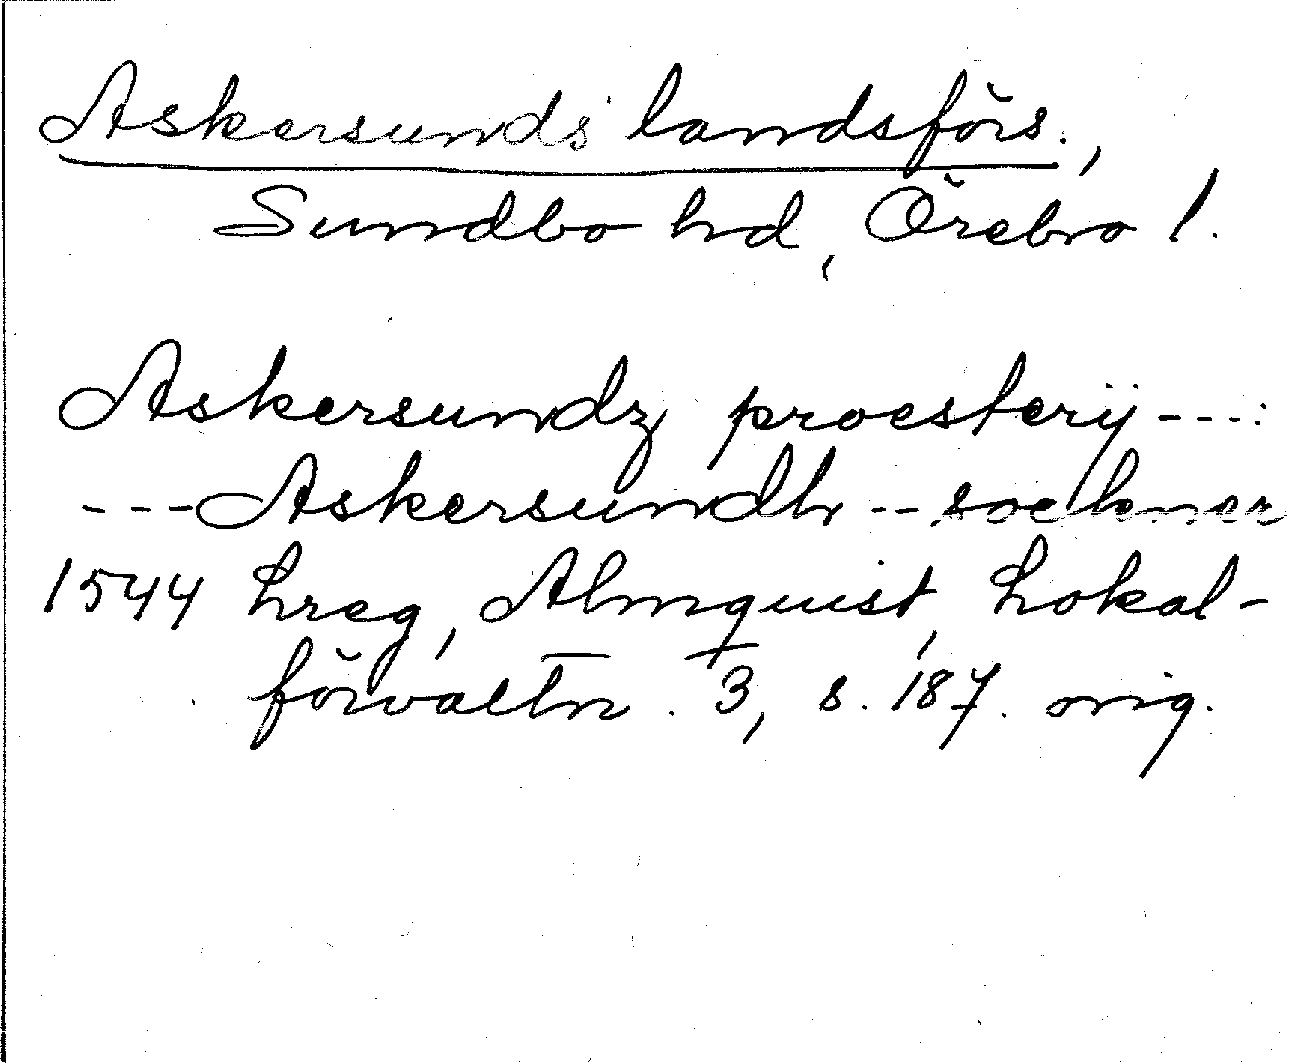 Askersunds landsförs.,
Sundbo hd, Örebro l.
Askersundz proesterij ---:
--- Askersundh -- sockner
1544 Lreg, Almquist, Lokal-
förvaltn. 3, s. 187. orig.